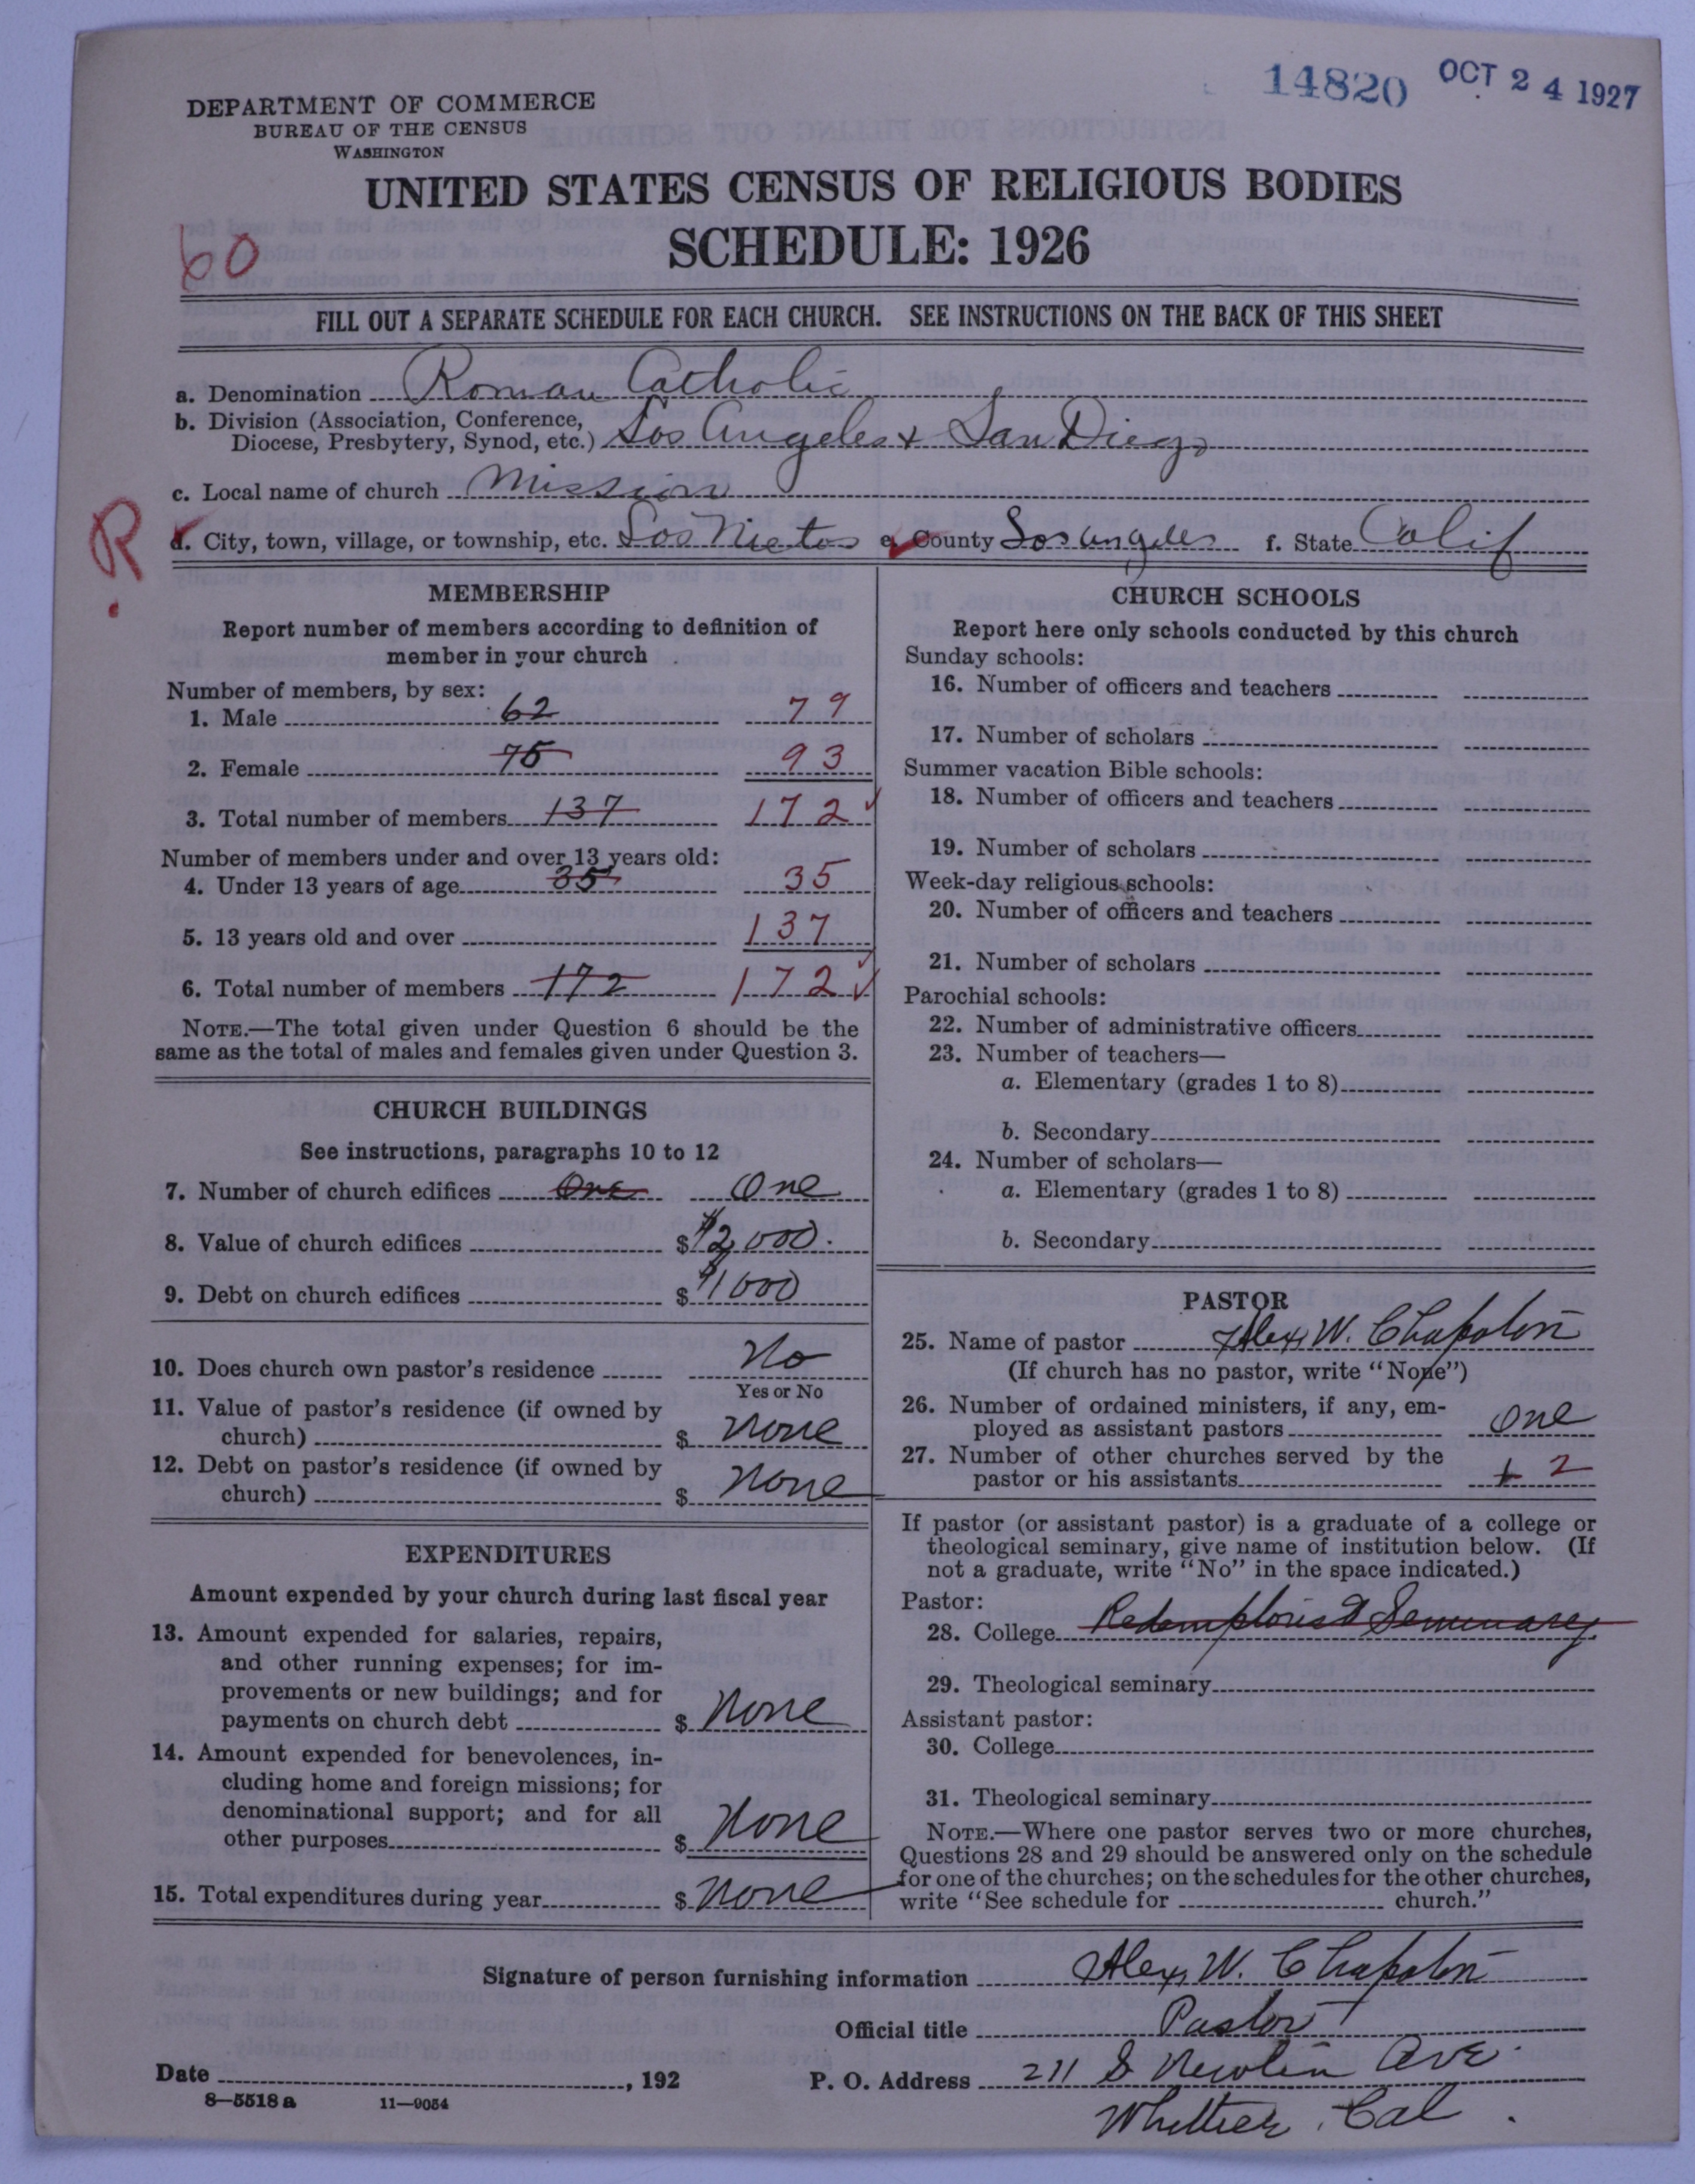 14820 OCT 24 1927
DEPARTMENT OF COMMERCE
BUREAU OF THE CENSUS
WASHINGTON
UNITED STATES CENSUS OF RELIGIOUS BODIES
SCHEDULE: 1926
60
FILL OUT A SEPARATE SCHEDULE FOR EACH CHURCH. SEE INSTRUCTIONS ON THE BACK OF THIS SHEET
a. Denomination Roman Catholic
b. Division (Association, Conference,
Diocese, Presbytery, Synod, etc.) Los Angeles & San Diego
c. Local name of church Mission
R
d. City, town, village, or township, etc. Los Nietos e. County Los Angeles f. State Calif
MEMBERSHIP
Report number of members according to definition of
member in your church
Number of members, by sex:
1. Male 62 79
2. Female 75 93
3. Total number of members 137 172
Number of members under and over 13 years old:
4. Under 13 years of age 35 35
5. 13 years old and over 137
6. Total number of members 172 172
NOTE.—The total given under Question 6 should be the
same as the total of males and females given under Question 3.
CHURCH BUILDINGS
See instructions, paragraphs 10 to 12
7. Number of church edifices One One
8. Value of church edifices $ $2,000.
9. Debt on church edifices $ $1000
10. Does church own pastor's residence No
Yes or No
11. Value of pastor's residence (if owned by
church) $ None
12. Debt on pastor's residence (if owned by
church) $ None
EXPENDITURES
Amount expended by your church during last fiscal year
13. Amount expended for salaries, repairs,
and other running expenses; for im-
provements or new buildings; and for
payments on church debt $ None
14. Amount expended for benevolences, in-
cluding home and foreign missions; for
denominational support; and for all
other purposes $ None
15. Total expenditures during year $ None
CHURCH SCHOOLS
Report here only schools conducted by this church
Sunday schools:
16. Number of officers and teachers
17. Number of scholars
Summer vacation Bible schools:
18. Number of officers and teachers
19. Number of scholars
Week-day religious schools:
20. Number of officers and teachers
21. Number of scholars
Parochial schools:
22. Number of administrative officers
23. Number of teachers—
a. Elementary (grades 1 to 8)
b. Secondary
24. Number of scholars—
a. Elementary (grades 1 to 8)
b. Secondary
PASTOR
25. Name of pastor Alex W. Chapoton
(If church has no pastor, write "None")
26. Number of ordained ministers, if any, em-
ployed as assistant pastors One
27. Number of other churches served by the
pastor or his assistants 1 2
If pastor (or assistant pastor) is a graduate of a college or
theological seminary, give name of institution below. (If
not a graduate, write "No" in the space indicated.)
Pastor:
28. College Redemptorist Seminary
29. Theological seminary
Assistant pastor:
30. College
31. Theological seminary
NOTE.—Where one pastor serves two or more churches,
Questions 28 and 29 should be answered only on the schedule
for one of the churches; on the schedules for the other churches,
write "See schedule for church."
Signature of person furnishing information Alex W. Chapoton
Official title Pastor
Date , 192 P. O. Address 211 S Newlin Ave.
8—5518 a 11—9054
Whittier, Cal.